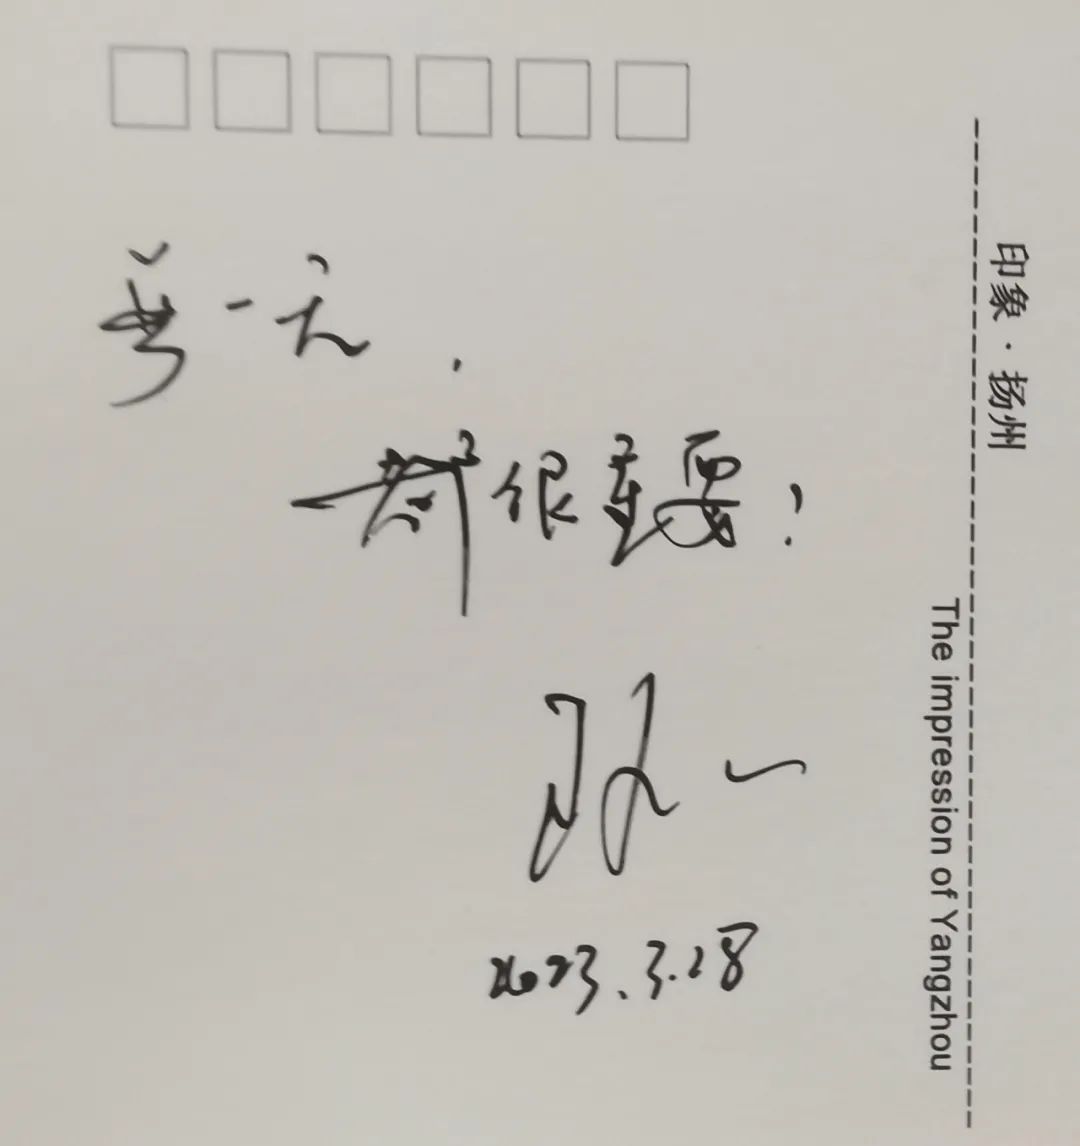 每一天，
都很重要！
2023.3.28
印象·扬州
The impression of Yangzhou